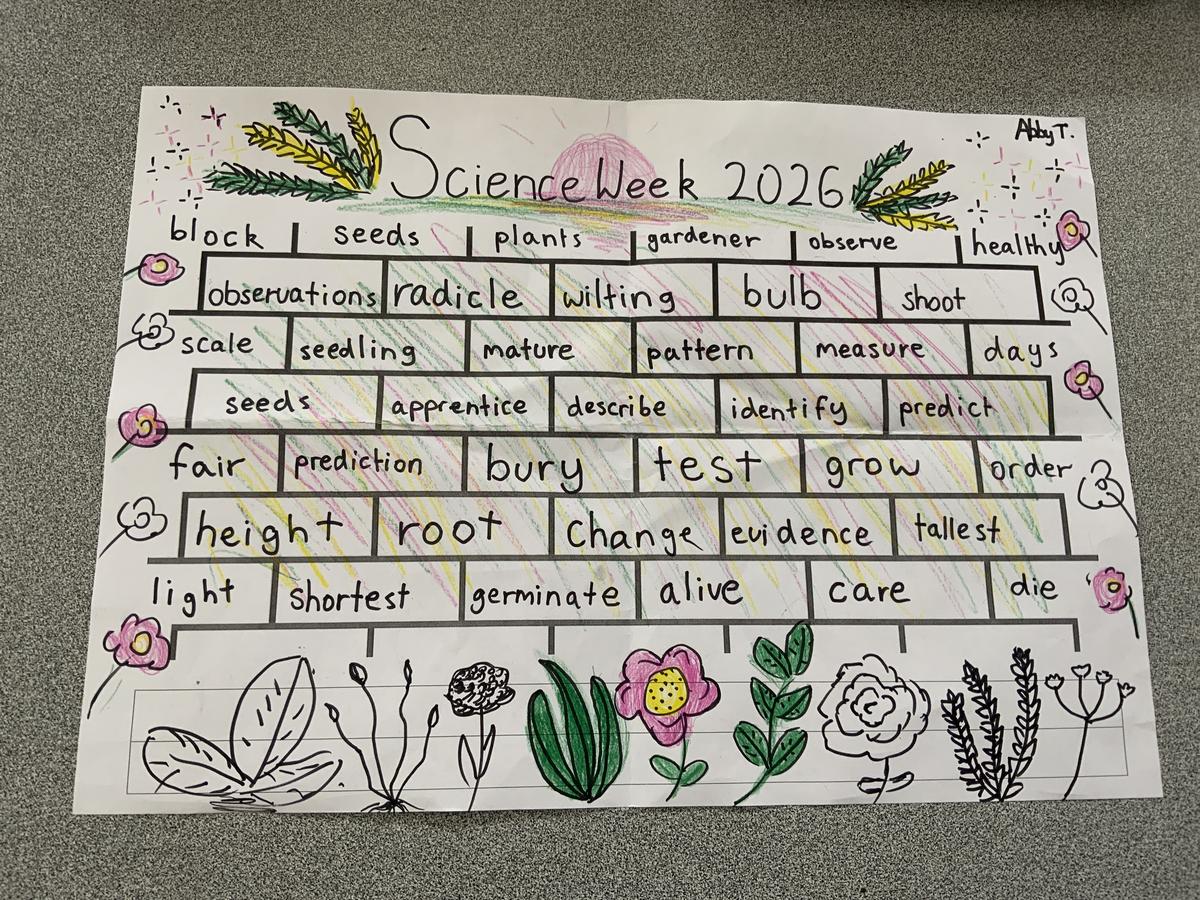 Abby T.
Science Week 2026
block seeds plants gardener observe healthy
observations radicle wilting bulb shoot
scale seedling mature pattern measure days
seeds apprentice describe identify predict
fair prediction bury test grow order
height root Change evidence tallest
light shortest germinate alive care die